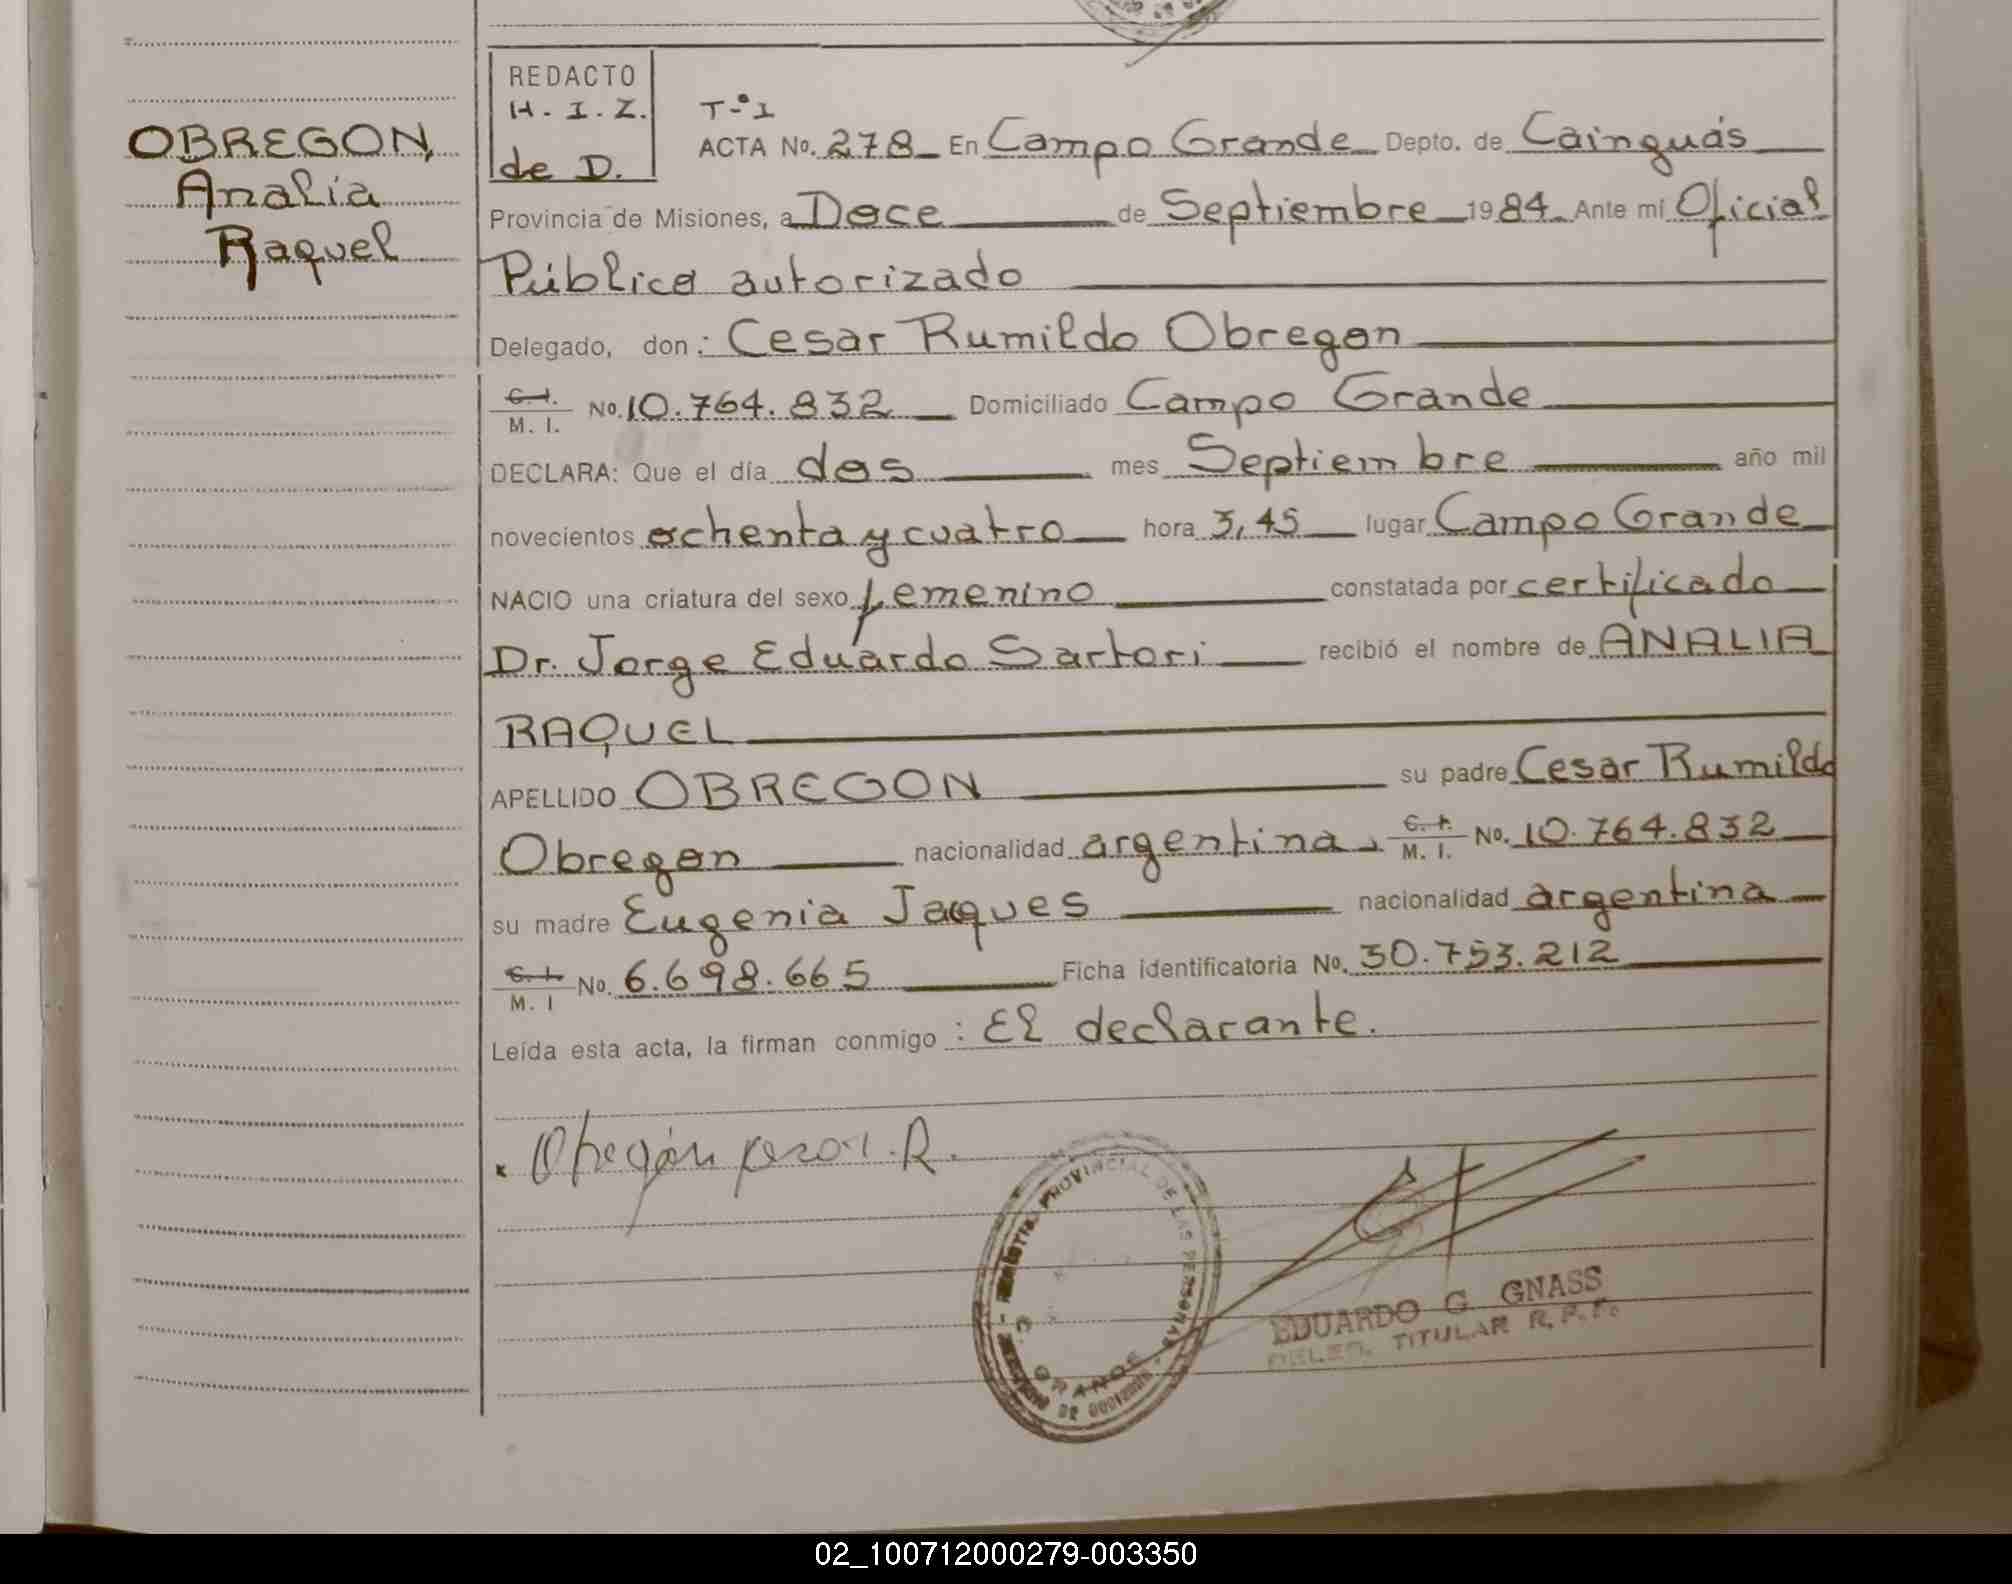 OBREGON,
Analia
Raquel
REDACTO
H. I. Z.
de D.
T-º I
ACTA No. 278 En Campo Grande Depto. de Cainguás
Provincia de Misiones, a Doce de Septiembre 1984 Ante mi Oficial
Público autorizado
Delegado, don: Cesar Rumildo Obregon
C. I. / M. I. No. 10.764.832 Domiciliado Campo Grande
DECLARA: Que el día dos mes Septiembre año mil
novecientos ochenta y cuatro hora 3,45 lugar Campo Grande
NACIO una criatura del sexo femenino constatada por certificado
Dr. Jorge Eduardo Sartori recibió el nombre de ANALIA
RAQUEL
APELLIDO OBREGON su padre Cesar Rumildo
Obregon nacionalidad argentina, C. I. / M. I. No. 10.764.832
su madre Eugenia Jaques nacionalidad argentina
C. I. / M. I No. 6.698.665 Ficha identificatoria No. 30.753.212
Leída esta acta, la firman conmigo: El declarante.
x Obregón Cesar R.
PROVINCIAL DE LAS PERSONAS
GRANDE
EDUARDO G. GNASS
DELEG. TITULAR R. P. P.
02_100712000279-003350